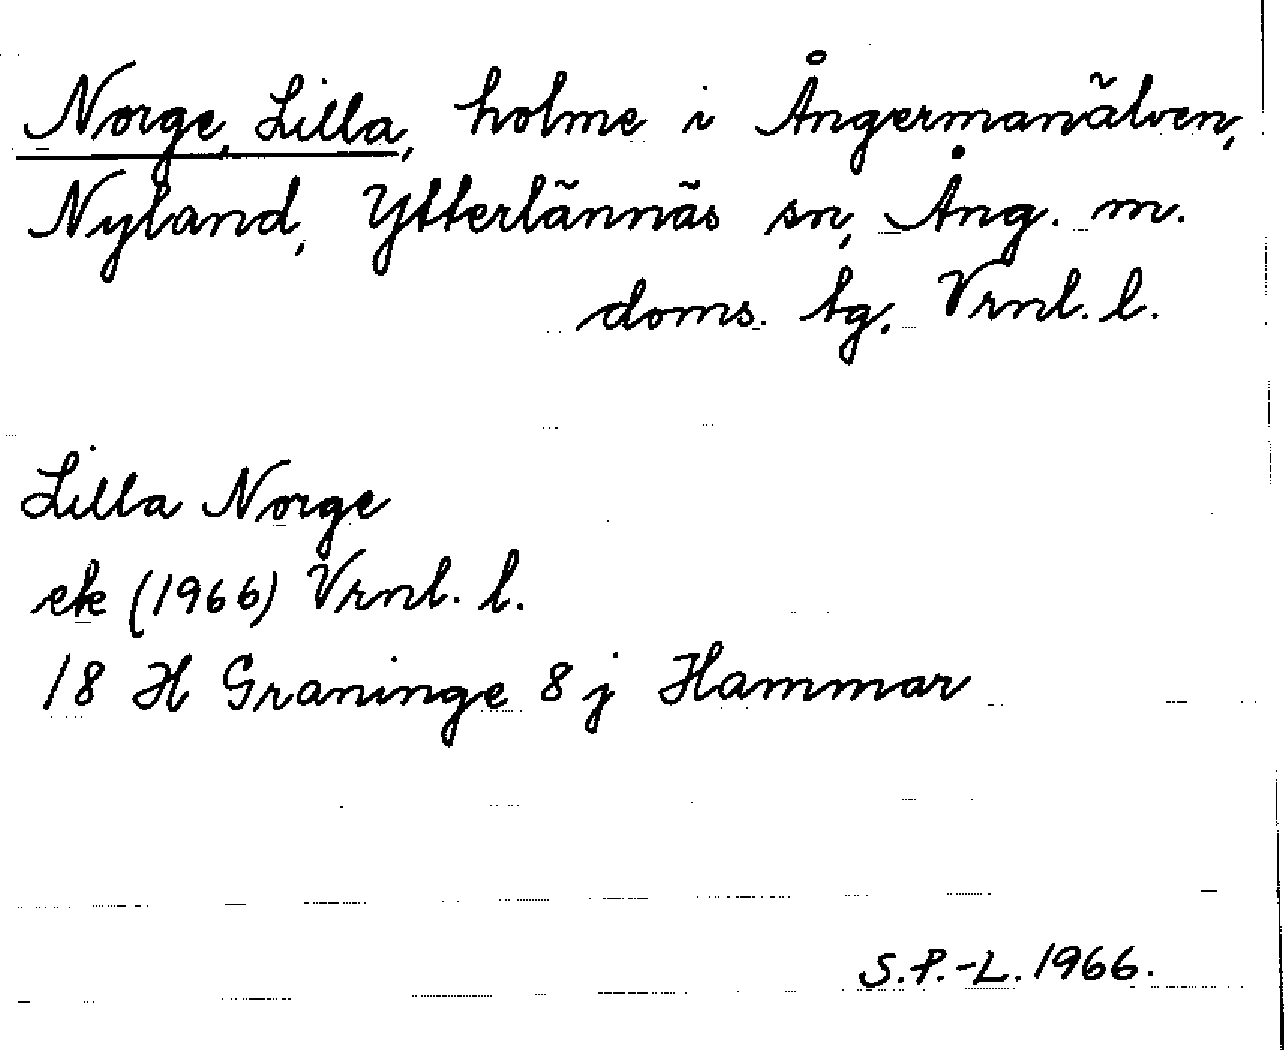 Norge, Lilla, holme i Ångermanälven,
Nyland, Ytterlännäs sn, Ång. m.
doms. tg. Vrnl. l.
Lilla Norge
ek (1966) Vrnl. l.
18 H Graninge 8 j Hammar
S.P.-L. 1966.